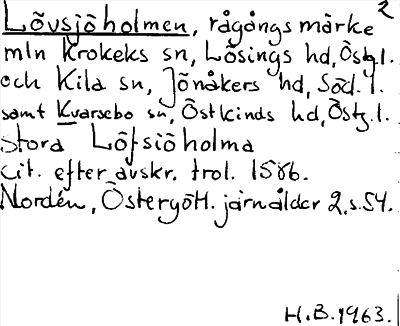 Lövsjöholmen, rågångsmärke 2
mln Krokeks sn, Lösings hd, Östg l.
och Kila sn, Jönåkers hd, Söd. l.
samt Kvarsebo sn, Östkinds hd, Östg. l.
Stora Löfsiöholma
cit. efter avskr. trol. 1586.
Nordén, Östergötl. järnålder 2, s. 54.
H.B. 1963.